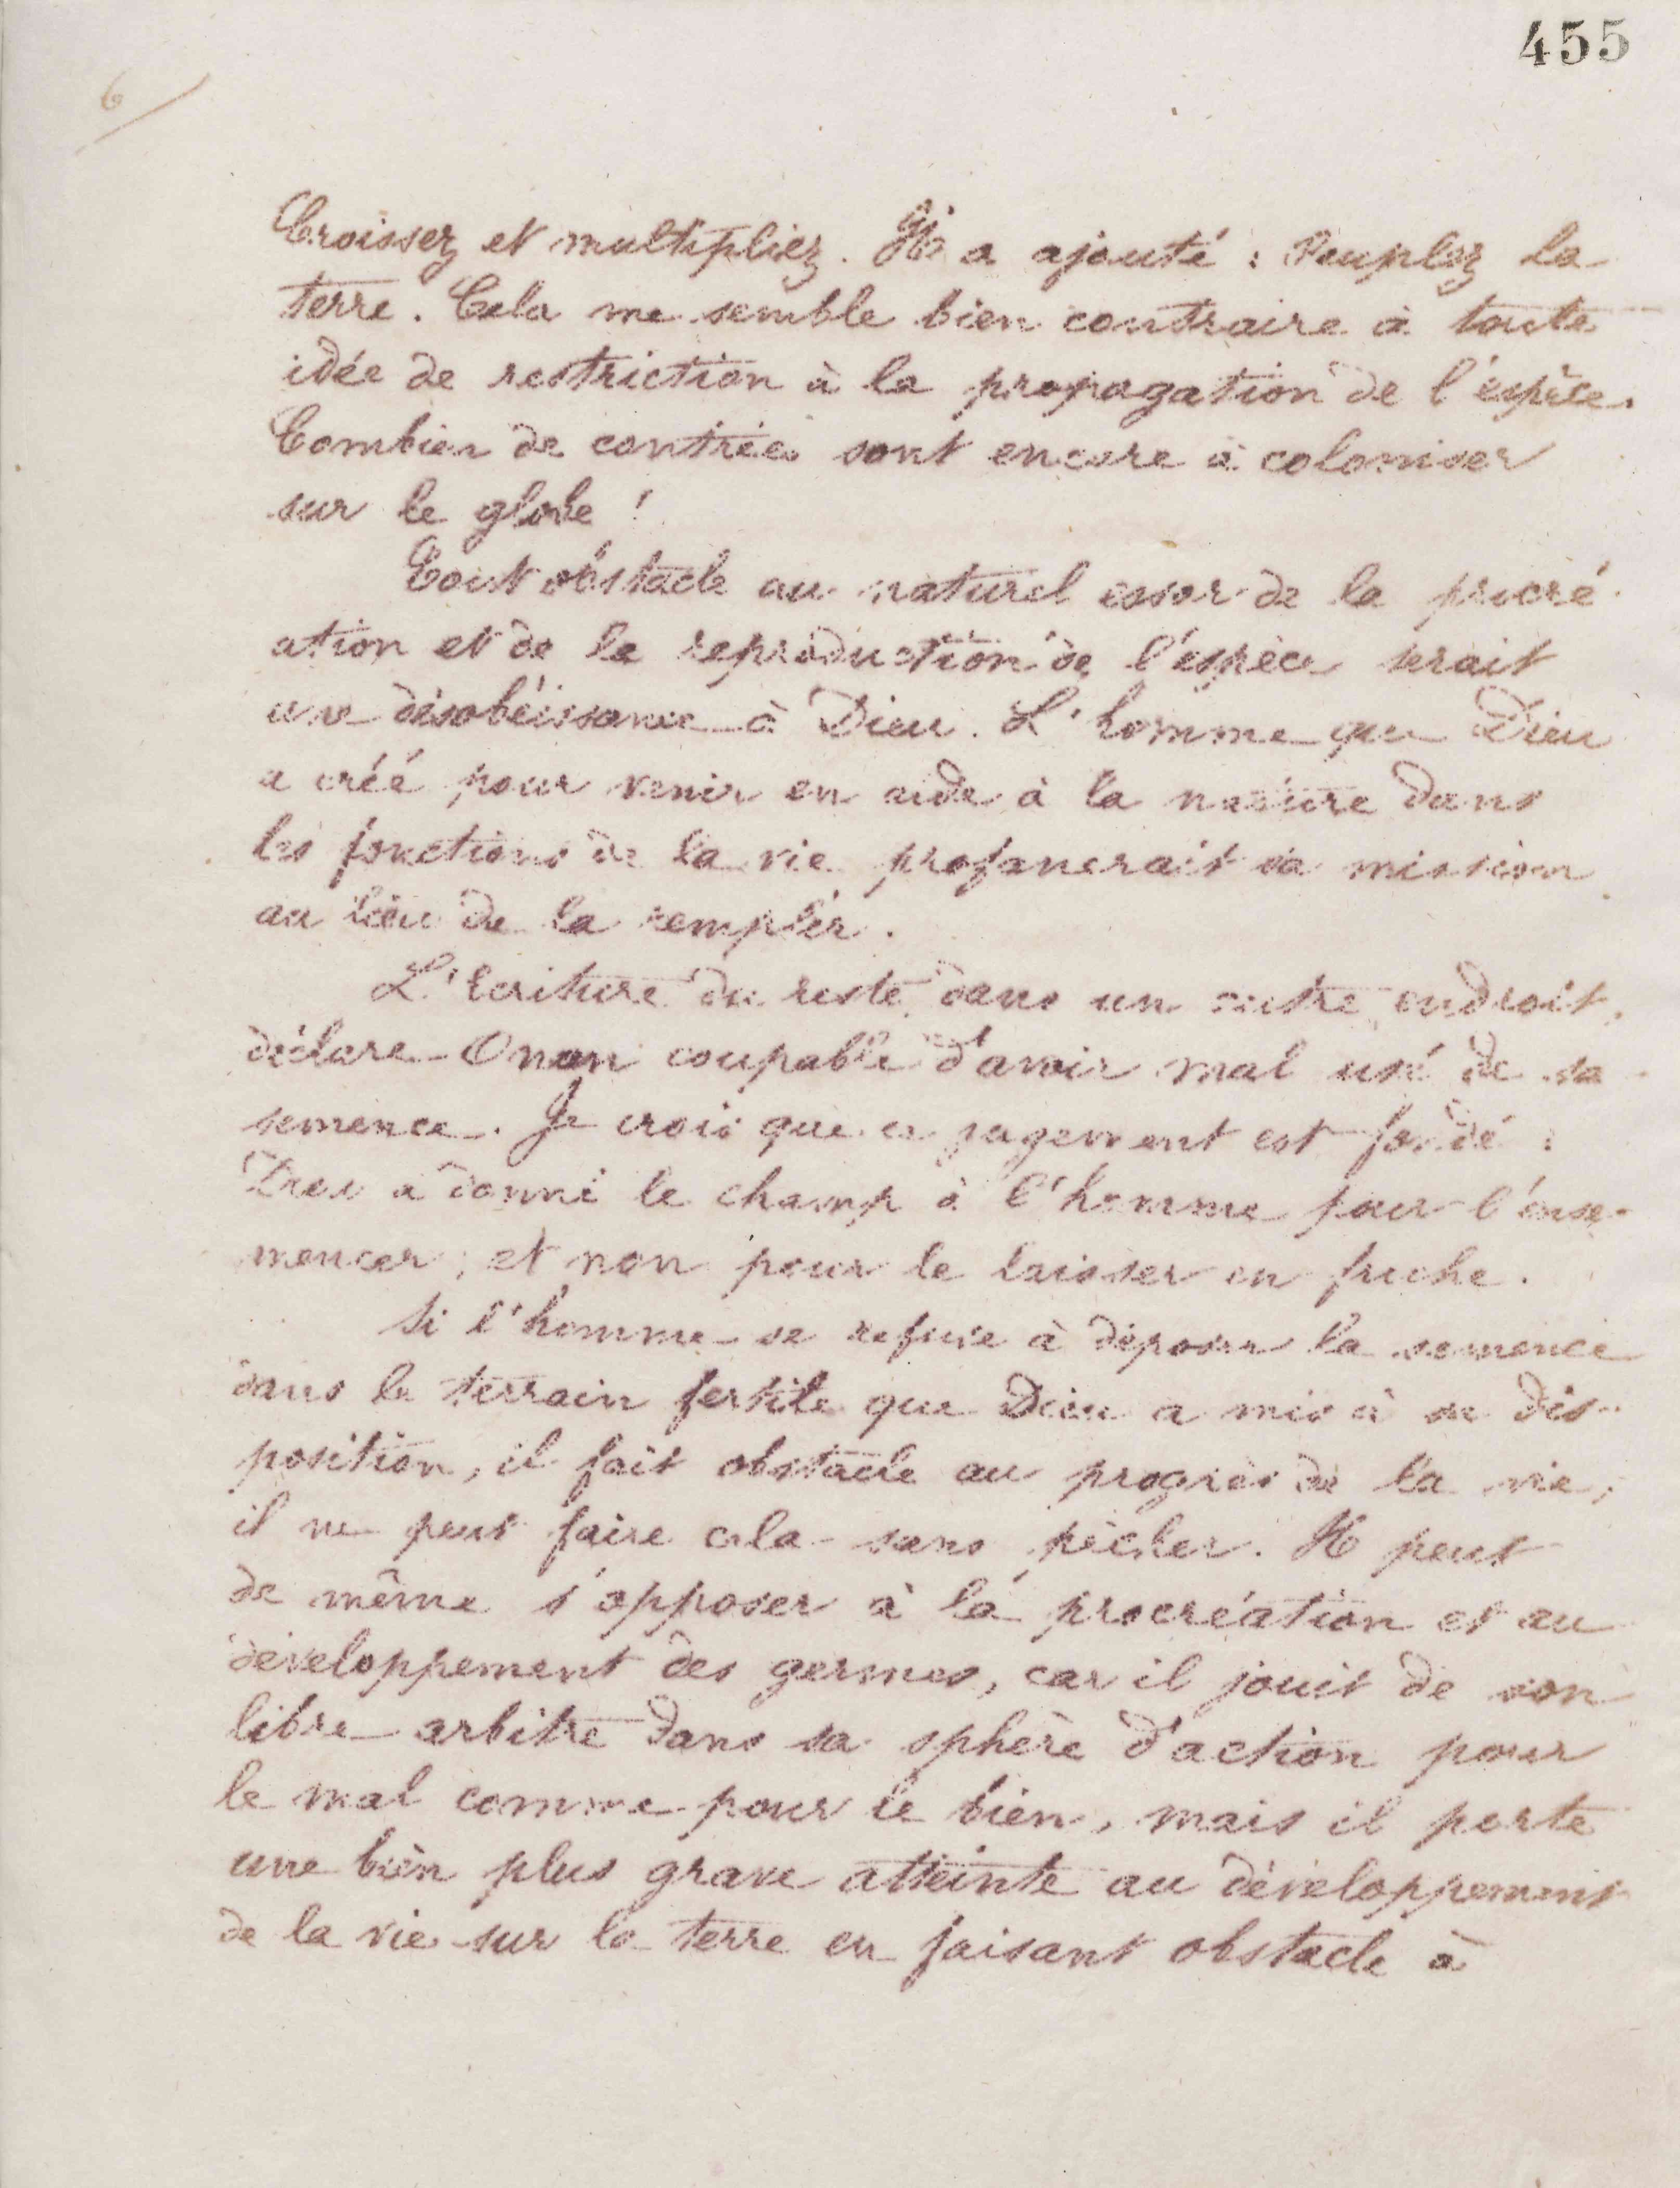 455
6
Croissez et multipliez. Il a ajouté : Peuplez la
terre. Cela me semble bien contraire à toute
idée de restriction à la propagation de l'espèce.
Combien de contrées sont encore à coloniser
sur le globe !
Tout obstacle au naturel essor de la procré-
ation et de la reproduction de l'espèce serait
une désobéissance à Dieu. L'homme que Dieu
a créé pour venir en aide à la nature dans
les fonctions de la vie profanerait sa mission
au lieu de la remplir.
L'Ecriture du reste, dans un autre endroit,
déclare Onan coupable d'avoir mal usé de sa
semence. Je crois que ce jugement est fondé :
Dieu a donné le champ à l'homme pour l'ense-
mencer, et non pour le laisser en friche.
Si l'homme se refuse à déposer la semence
dans le terrain fertile que Dieu a mis à sa dis-
position, il fait obstacle au progrès de la vie,
il ne peut faire cela sans pécher. Il peut
de même s'opposer à la procréation et au
développement des germes, car il jouit de son
libre arbitre dans sa sphère d'action pour
le mal comme pour le bien, mais il porte
une bien plus grave atteinte au développement
de la vie sur la terre en faisant obstacle à